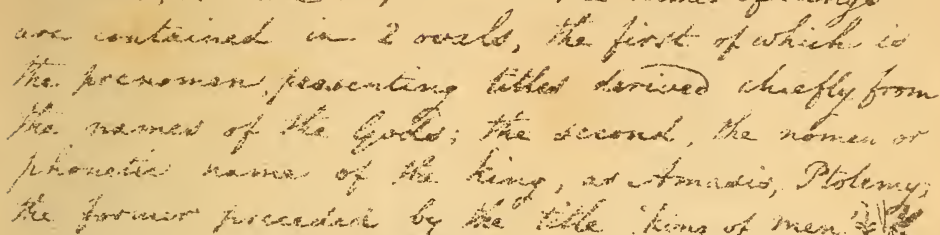 are contained in 2 ovals, the first of which is
the prenomen, presenting titles derived chiefly from
the names of the Gods; the second, the nomen or
phonetic name of the king, as Amasis, Ptolemy;
the former preceded by the title "king of men